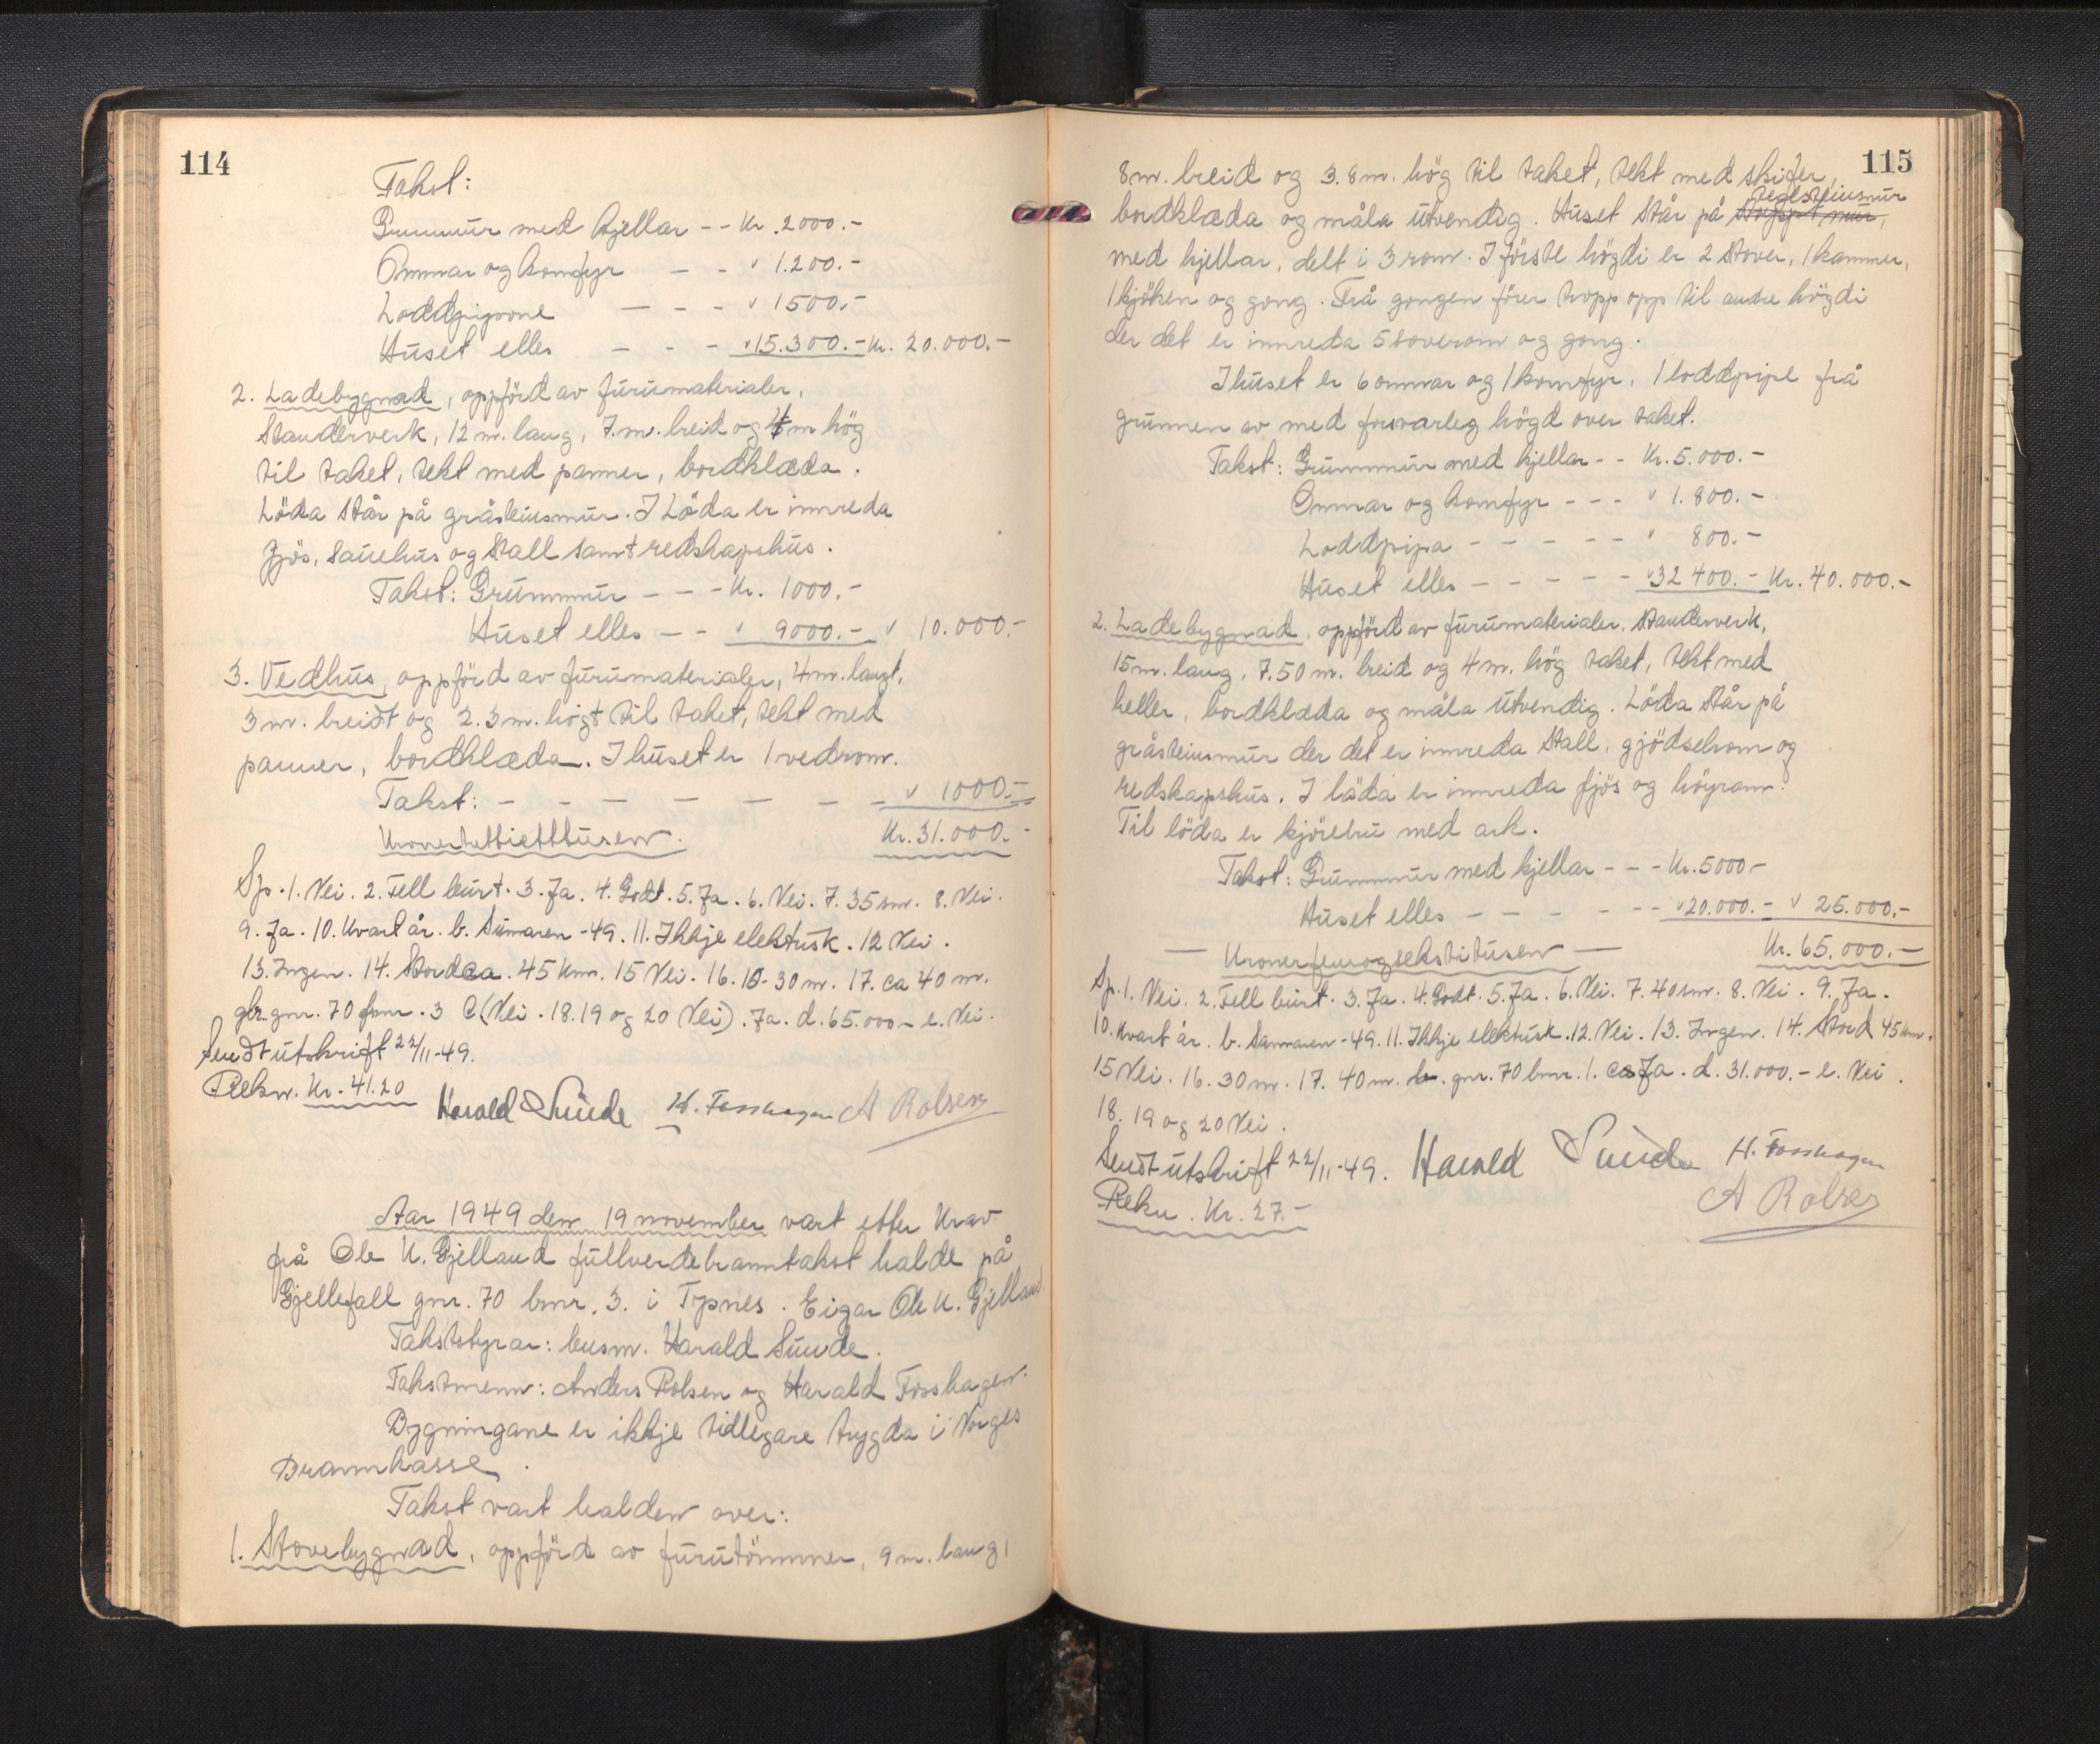 114
Takst:
Grunnmur med kjellar -- Kr. 2000.-
Omnar og komfyr - - " 1.200.-
Loddpipone - - - " 1500.-
Huset elles - - - " 15.300.- Kr. 20.000.-
2. Ladebygnad, oppförd av furumaterialer,
Standerverk, 12 m. lang, 7. m. breid og 4 m hög
til taket, tekt med panner, bordklæda.
Löda står på gråsteinsmur. I Löda er innreda
fjös, sauehus og stall samt redskapshus.
Takst: Grunnmur - - - Kr. 1000.-
Huset elles - - " 9000.- " 10.000.-
3. Vedhus, oppförd av furumaterialer, 4 m. langt,
3 m. breidt og 2.3 m. högt til taket, tekt med
panner, bordklæda. I huset er 1 vedrom.
Takst: - - - - - - - " 1000.-
Kronertrettieittusen. Kr. 31.000.-
Sp. 1. Nei. 2. Fell burt. 3. Ja. 4. Godt. 5. Ja. 6. Nei. 7. 35 sm. 8. Nei.
9. Ja. 10. Kvart år. b. Sumaren -49. 11. Ikkje elektrisk. 12 Nei.
13. Ingen. 14. Stord ca. 45 km. 15 Nei. 16. 10-30 m. 17. ca 40 m.
gnr. 70 bnr. 3 C (Nei. 18. 19 og 20 Nei). Ja. d. 65.000 - e. Nei.
Sendt utskrift 22/11-49.
Rekn. Kr. 41.20 Harald Sunde H. Fosshagen A Rolsen
Aar 1949 den 19 november vart etter krav
frå Ole K. Gjelland fullverdebranntakst halde på
Gjellefall gnr. 70 bnr. 3. i Tysnes. Eigar Ole K. Gjelland.
Takststyrar: lensm. Harald Sunde.
Takstmenn: Anders Rolsen og Harald Fosshagen.
Bygningane er ikkje tidlegare trygda i Norges
Brannkasse.
Takst vart halden over:
1. Stovebygnad, oppförd av furutömmer, 9 m. lang,
115
8 m. breid og 3.8 m. hög til taket, tekt med skifer,
teglsteinsmur
bordklæda og måla utvendig. Huset står på støypt mur,
med kjellar, delt i 3 rom. I förste högdi er 2 stover, 1 kammer,
1 kjöken og gong. Frå gongen förer tropp opp til andre högdi
der det er innreda 5 soverom og gong.
I huset er 6 omnar og 1 komfyr, 1 loddpipe frå
grunnen av med forsvarleg högd over taket.
Takst: Grunnmur med kjellar -- Kr. 5.000.-
Omnar og komfyr - - - " 1.800.-
Loddpipa - - - - - " 800.-
Huset elles - - - - - " 32 400.- Kr. 40.000.-
2. Ladebygnad, oppförd av furumaterialer. Standerverk,
15 m. lang, 7.50 m. breid og 4 m. hög taket, tekt med
heller, bordklæda og måla utvendig. Löda står på
gråsteinsmur der det er innreda stall, gjödselrom og
redskapshus. I löda er innreda fjös og höyrom.
Til löda er kjörebru med ark.
Takst: Grunnmur med kjellar - - - Kr. 5000-
Huset elles - - - - - - " 20.000.- " 25.000.-
- Kronerfemogsekstitusen - Kr. 65.000.-
Sp. 1. Nei. 2. Fell burt. 3. Ja. 4. Godt. 5. Ja. 6. Nei. 7. 40 sm. 8. Nei. 9. Ja.
10. Kvart år. b. Sumaren -49. 11. Ikkje elektrisk. 12. Nei. 13. Ingen. 14. Stord 45 km.
15 Nei. 16. 30 m. 17. 40 m. gnr. 70 bnr. 1. Ja. d. 31.000.- e. Nei.
18. 19 og 20 Nei.
Sendt utskrift 22/11-49. Harald Sunde H. Fosshagen
Rekn. Kr. 27.- A Rolsen